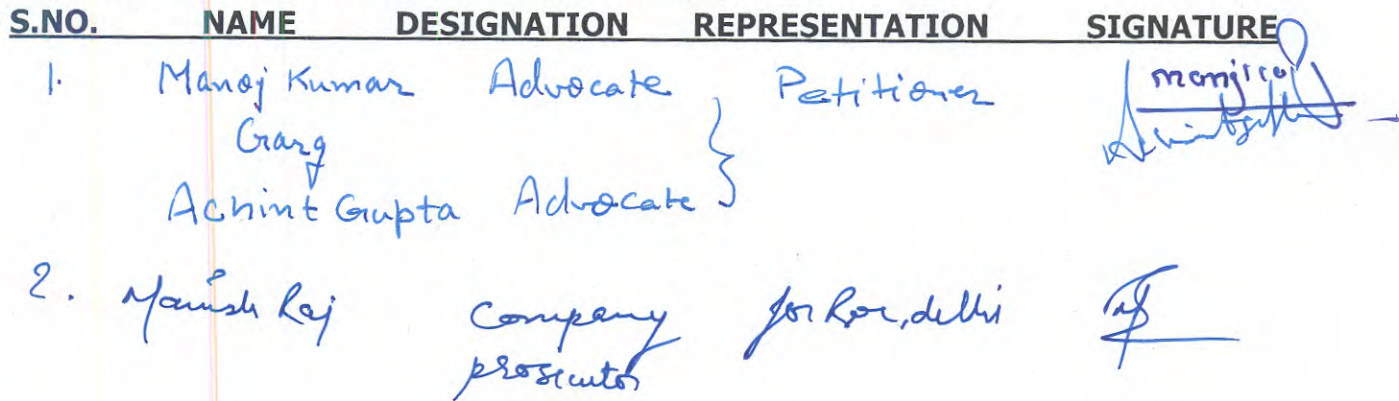 S.NO. NAME DESIGNATION REPRESENTATION SIGNATURE
1. Manoj Kumar Advocate } Petitioner
Garg
Achint Gupta Advocate
2. Manish Raj company for Roc, delhi
prosecutor